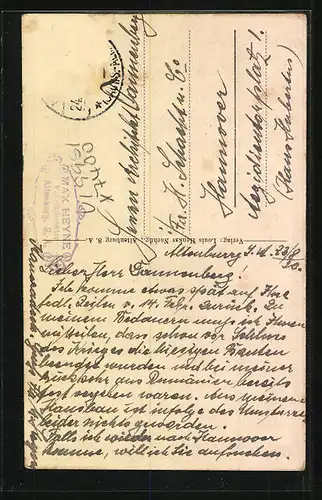 Herrn Architekt Dannenberg
Hannover
Aegidientorplatz 1
(Haus Hubertus)
Verlag: Louis Henkes Nachflg., Altenburg S. A.
MAX HEYNE
Altenburg, S.
Altenburg S.A. 23/8
Lieber Herr Dannenberg!
Ich komme etwas spät auf Ihre
frdl. Zeilen v. 14. Febr. zurück. Zu
meinem Bedauern muß ich Ihnen
mitteilen, dass schon vor Schluss
des Krieges die hiesigen Bauten
beendigt wurden und bei meiner
Rückkehr aus Rumänien bereits
fest vergeben waren. Aus meinem
Hausbau ist infolge des Umsturzes
leider nichts geworden.
Falls ich wieder nach Hannover
komme, will ich Sie aufsuchen.